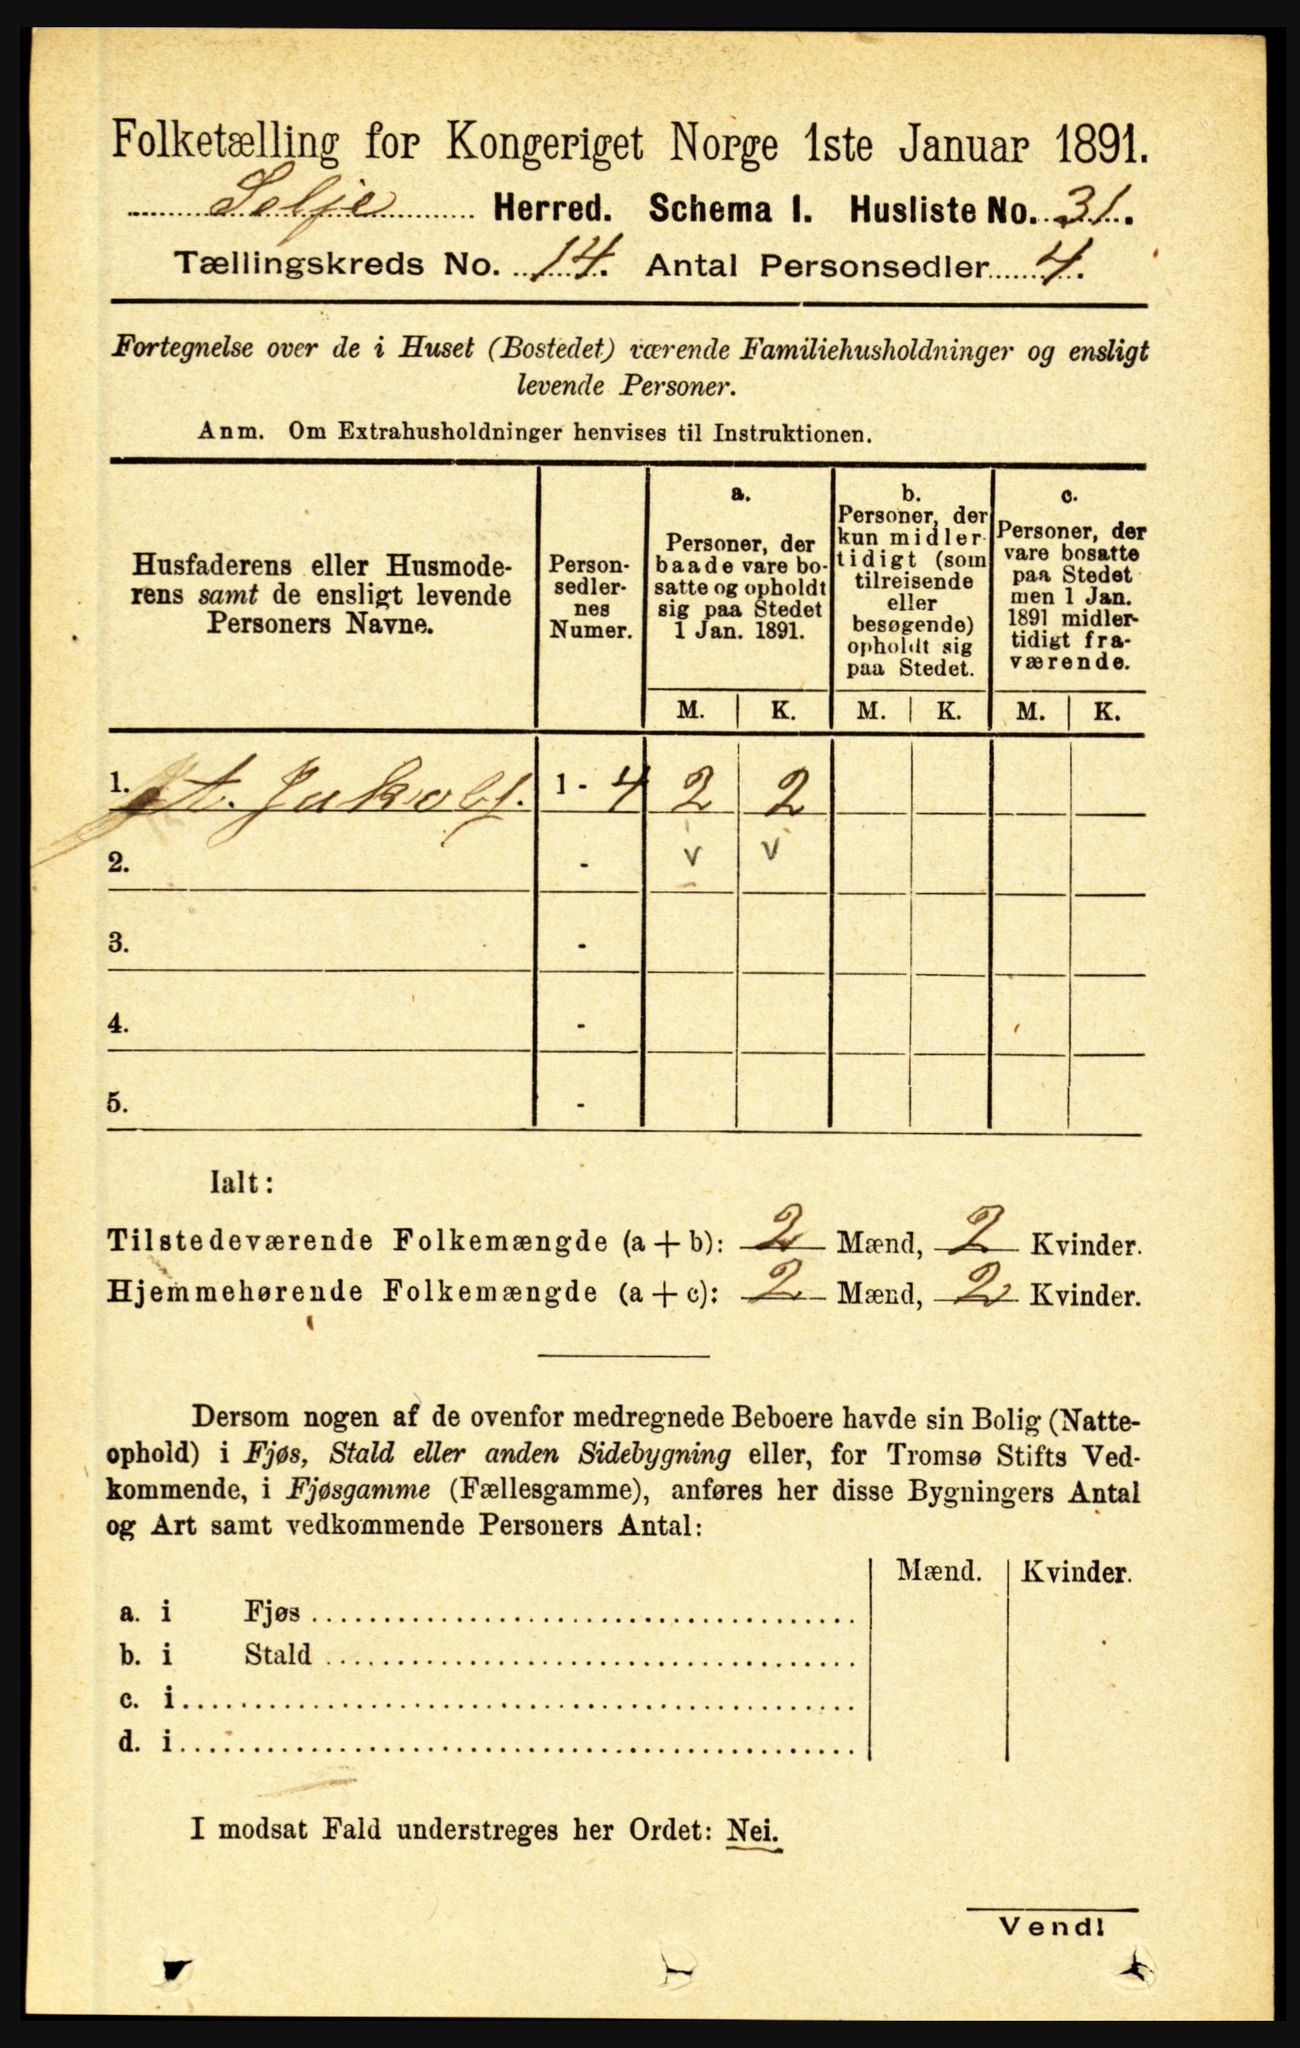 Folketælling for Kongeriget Norge 1ste Januar 1891.
Selje Herred. Schema I. Husliste No. 31.
Tællingskreds No. 14. Antal Personsedler 4.
Fortegnelse over de i Huset (Bostedet) værende Familiehusholdninger og ensligt
levende Personer.
Anm. Om Extrahusholdninger henvises til Instruktionen.
Husfaderens eller Husmode-
rens samt de ensligt levende
Personers Navne.
Person-
sedler-
nes
Numer.
a.
Personer, der
baade vare bo-
satte og opholdt
sig paa Stedet
1 Jan. 1891.
b.
Personer, der
kun midler-
tidigt (som
tilreisende
eller
besøgende)
opholdt sig
paa Stedet.
c.
Personer, der
vare bosatte
paa Stedet
men 1 Jan.
1891 midler-
tidigt fra-
værende.
M. K. M. K. M. K.
1. Jakobs. 1 - 4 2 2
2. - v v
3. -
4. -
5. -
Ialt:
Tilstedeværende Folkemængde (a + b): 2 Mænd, 2 Kvinder.
Hjemmehørende Folkemængde (a + c): 2 Mænd, 2 Kvinder.
Dersom nogen af de ovenfor medregnede Beboere havde sin Bolig (Natte-
ophold) i Fjøs, Stald eller anden Sidebygning eller, for Tromsø Stifts Ved-
kommende, i Fjøsgamme (Fællesgamme), anføres her disse Bygningers Antal
og Art samt vedkommende Personers Antal:
Mænd. Kvinder.
a. i Fjøs
b. i Stald
c. i
d. i
I modsat Fald understreges her Ordet: Nei.
Vend!